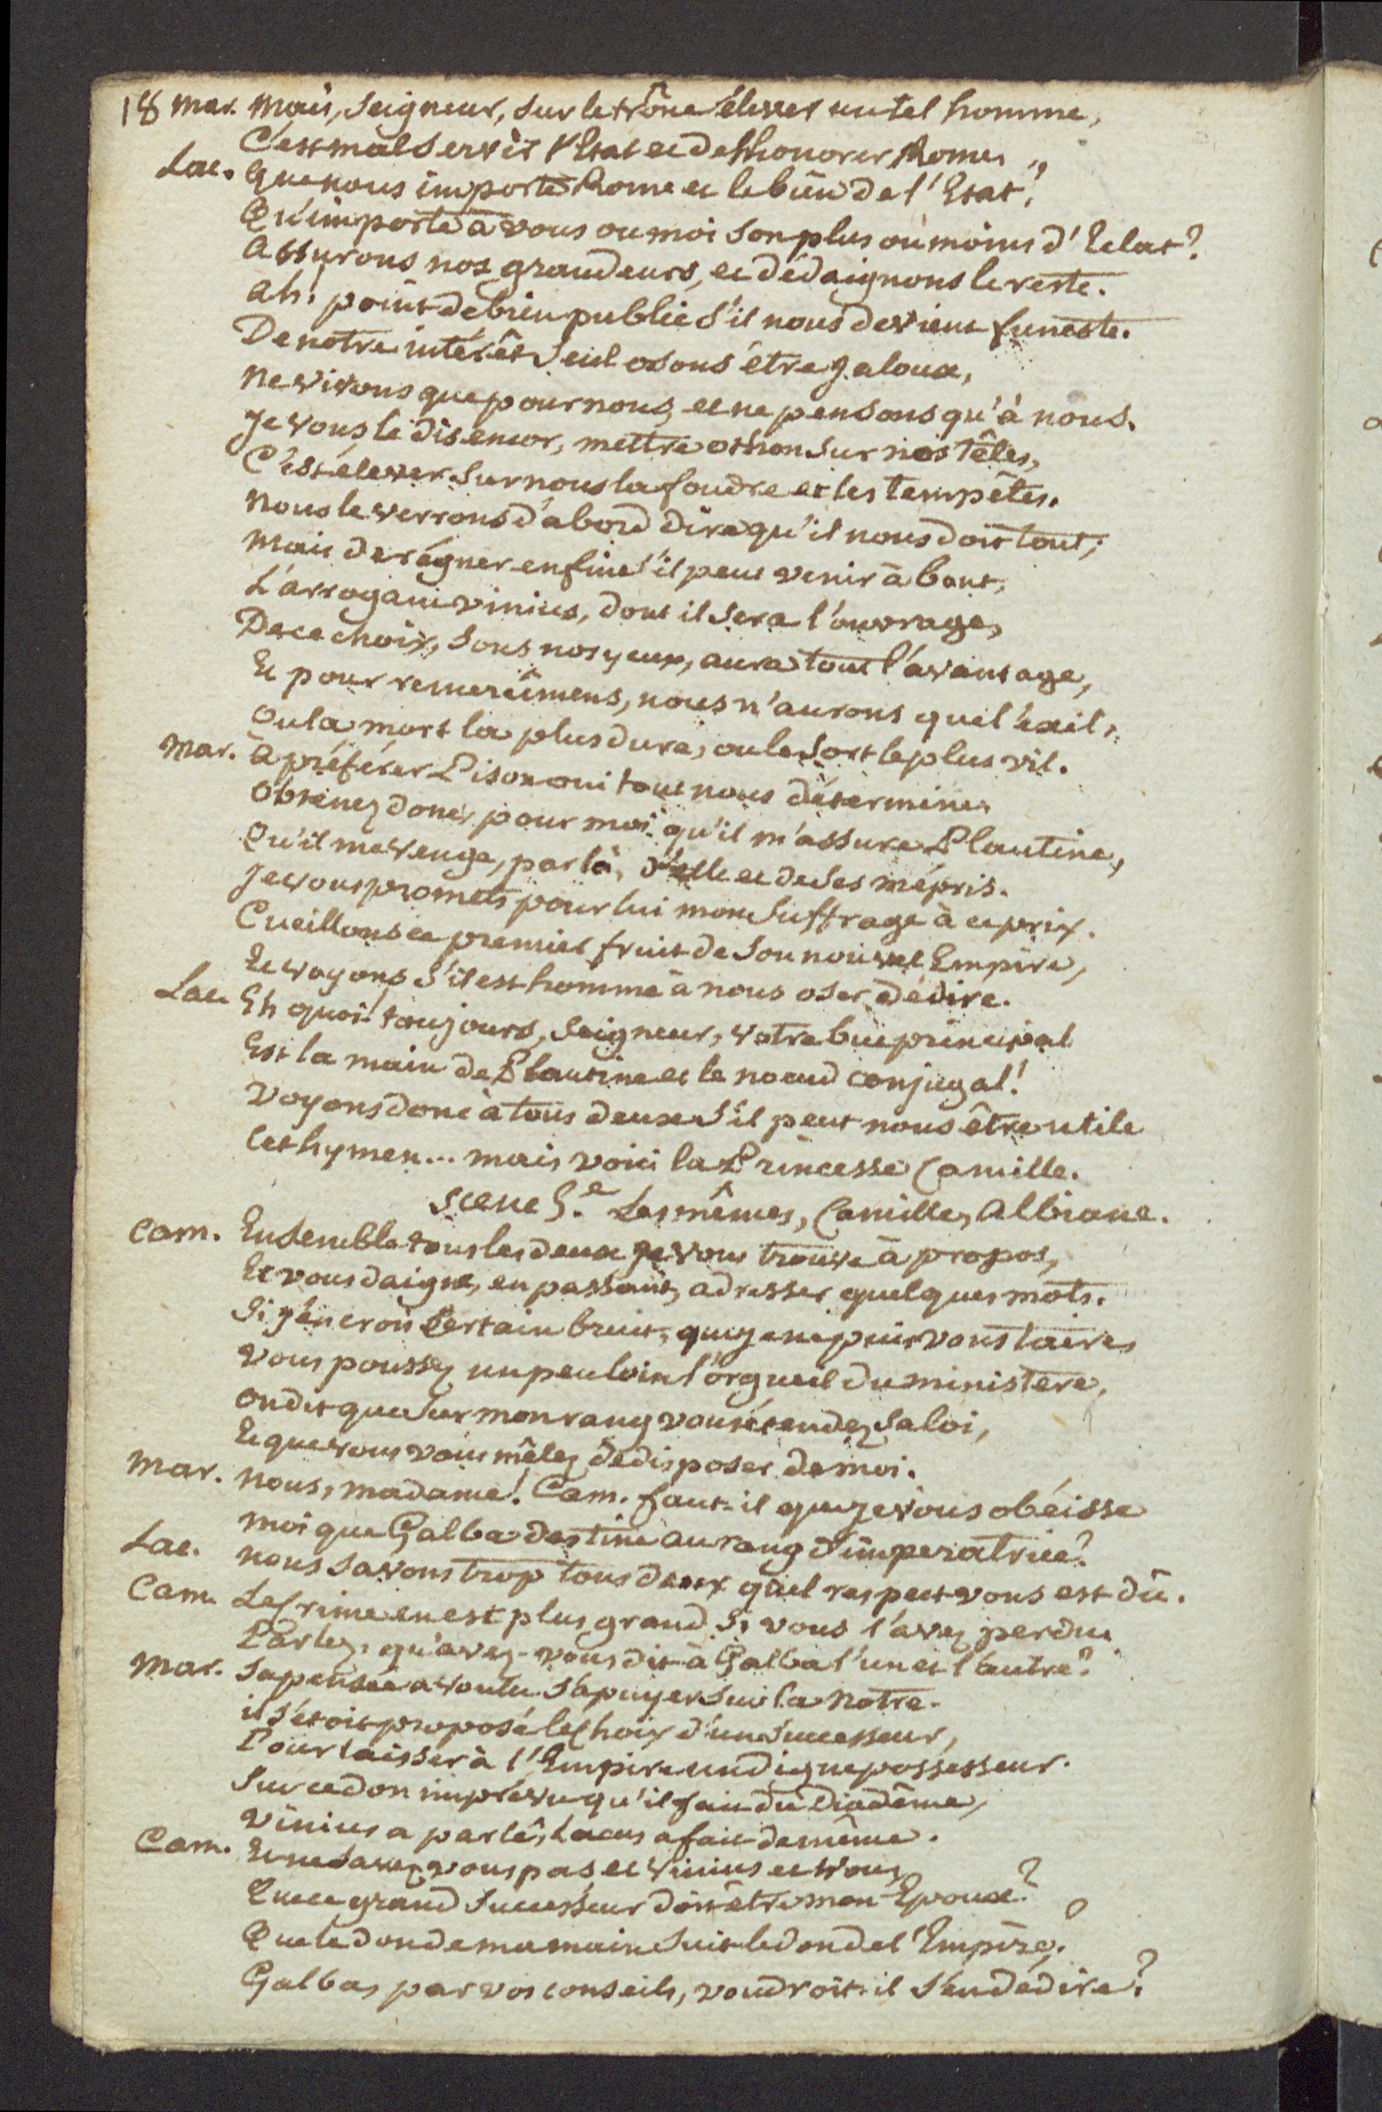 18 Mar. Mais, Seigneur, sur le trône élever un tel homme,
C'est mal servir l'Etat et deshonorer Rome.
Lac. Que nous importe Rome et le bien de l'Etat?
Qu'importe à vous ou moi son plus ou moins d'Eclat?
Assurons nos grandeurs, et dédaignons le reste.
Ah! point de bien public s'il nous devient funeste.
De notre intérêt seul osons être jaloux,
Ne vivons que pour nous, et ne pensons qu'à nous.
Je vous le dis encor, mettre Othon sur nos têtes,
C'est élever sur nous la foudre et les tempêtes.
Nous le verrons d'abord dire qu'il nous doit tout;
Mais de régner enfin s'il peut venir à bout,
L'arrogant Vinius, dont il sera l'ouvrage,
De ce choix, sous nos yeux, aura tout l'avantage,
Et pour remercîmens, nous n'aurons que l'exil,
Ou la mort la plus dure, ou le sort le plus vil.
Mar. A préférer Pison oui tout nous détermine,
Obtenez donc pour moi qu'il m'assure Plautine,
Qu'il me venge, par là, d'elle et de ses mépris.
Je vous promets pour lui mon suffrage à ce prix.
Cueillons ce premier fruit de son nouvel Empire,
Et voyons s'il est homme à nous oser dédire.
Lac. Eh quoi! toujours, Seigneur, votre but principal
Est la main de Plautine et le noeud conjugal!
Voyons donc à tous deux s'il peut nous être utile
Cet hymen... mais voici la Princesse Camille.
Scene 5.e Les mêmes, Camille, Albiane.
Cam. Ensemble tous les deux je vous trouve à propos,
Et vous daigne, en passant, adresser quelques mots.
Si j'en crois certain bruit, que je ne puis vous taire,
Vous poussez un peu loin l'orgueil du ministere,
On dit que sur mon rang vous étendez sa loi,
Et que vous vous mêlez de disposer de moi.
Mar. Nous, madame! Cam. faut-il que je vous obéisse
Moi que Galba destine au rang d'impératrice?
Lac. nous savons trop tous deux quel respect vous est dû.
Cam. Le Crime en est plus grand si vous l'avez perdu.
Parlez, qu'avez-vous dit à Galba l'un et l'autre?
Mar. Sa pensée a voulu s'apuyer sur la Notre.
il s'étoit proposé le Choix d'un Successeur,
Pour laisser à l'Empire un digne possesseur.
Sur ce don imprévu qu'il fait du Diadême,
Vinius a parlé, Lacus a fait de même.
Cam. Et ne savez vous pas, et Vinius et vous,
Que ce grand Successeur doit être mon Epoux?
Que le don de ma main suit le don de l'Empire?
Galba, par vos conseils, voudroit-il s'en dédire?